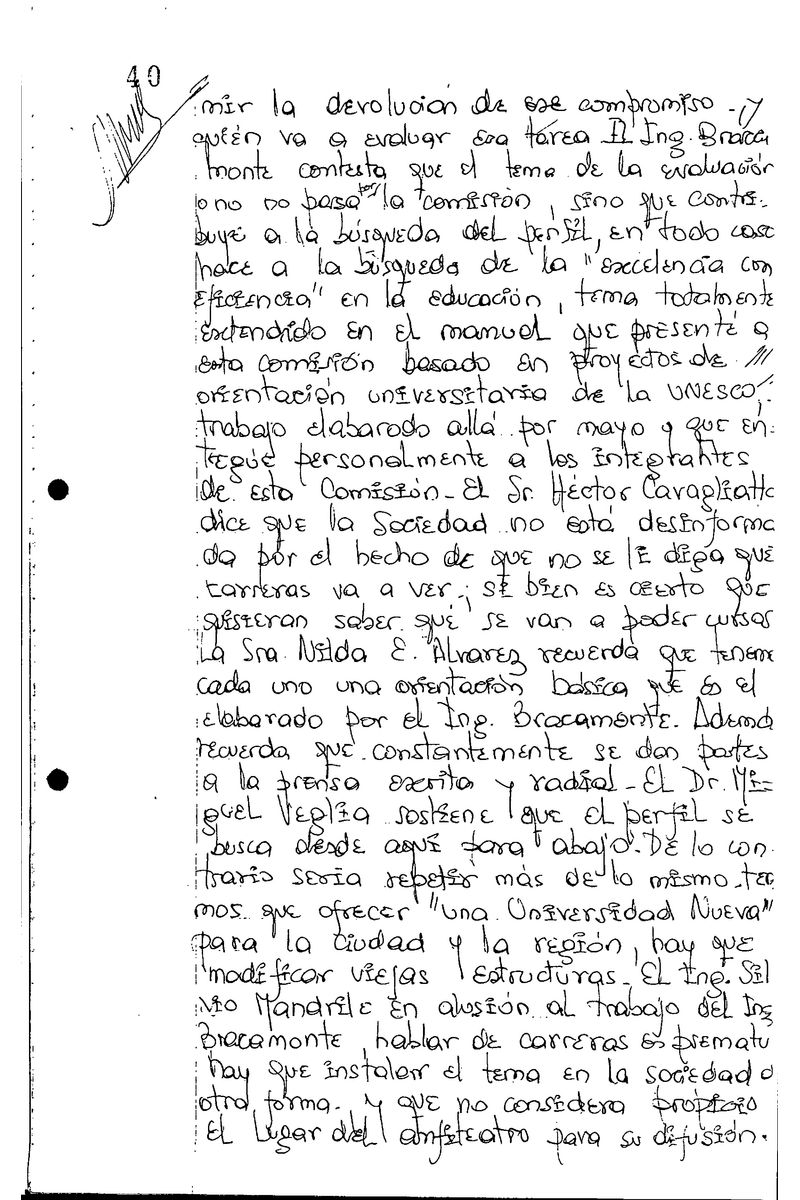 40
mir la devolución de ese compromiso - y
quién va a evaluar esa tárea El Ing. Braca
monte contesta que el tema de la evaluación
o no no pasa por la comisión, sino que contri-
buye a la búsqueda del perfil, en todo caso
hace a la búsqueda de la "excelencia con
eficiencia" en la educación, tema totalmente
extendido en el manuel que presenté a
esta comisión basado en proyectos de ///
orientación universitaria de la UNESCO,
trabajo elabarodo allá por mayo y que en-
tregué personalmente a los integrantes
de esta Comisión - El Sr. Héctor Cavagliatto
dice que la Sociedad no está desinforma
da por el hecho de que no se le diga qué
carreras va a ver, si bien es cierto que
quisieran saber qué se van a poder cursar
La Sra. Nilda E. Alvarez recuerda que tenem
cada uno una orientación básica que es el
elabarado por el Ing. Bracamonte. Ademá
recuerda que constantemente se dan partes
a la prensa escrita y radial - El Dr. Mi-
guel Veglia sostiene que el perfil se
busca desde aquí para abajo. De lo con-
trario seria repetir más de lo mismo - ten
mos que ofrecer "una Universidad Nueva"
para la ciudad y la región, hay que
modificar viejas estructuras - El Ing. Sil
vio Mandrile en alusión al trabajo del Ing
Bracamonte, hablar de carreras es prematu
hay que instalar el tema en la sociedad d
otra forma - y que no considera propicio
El lugar del anfiteatro para su difusión.